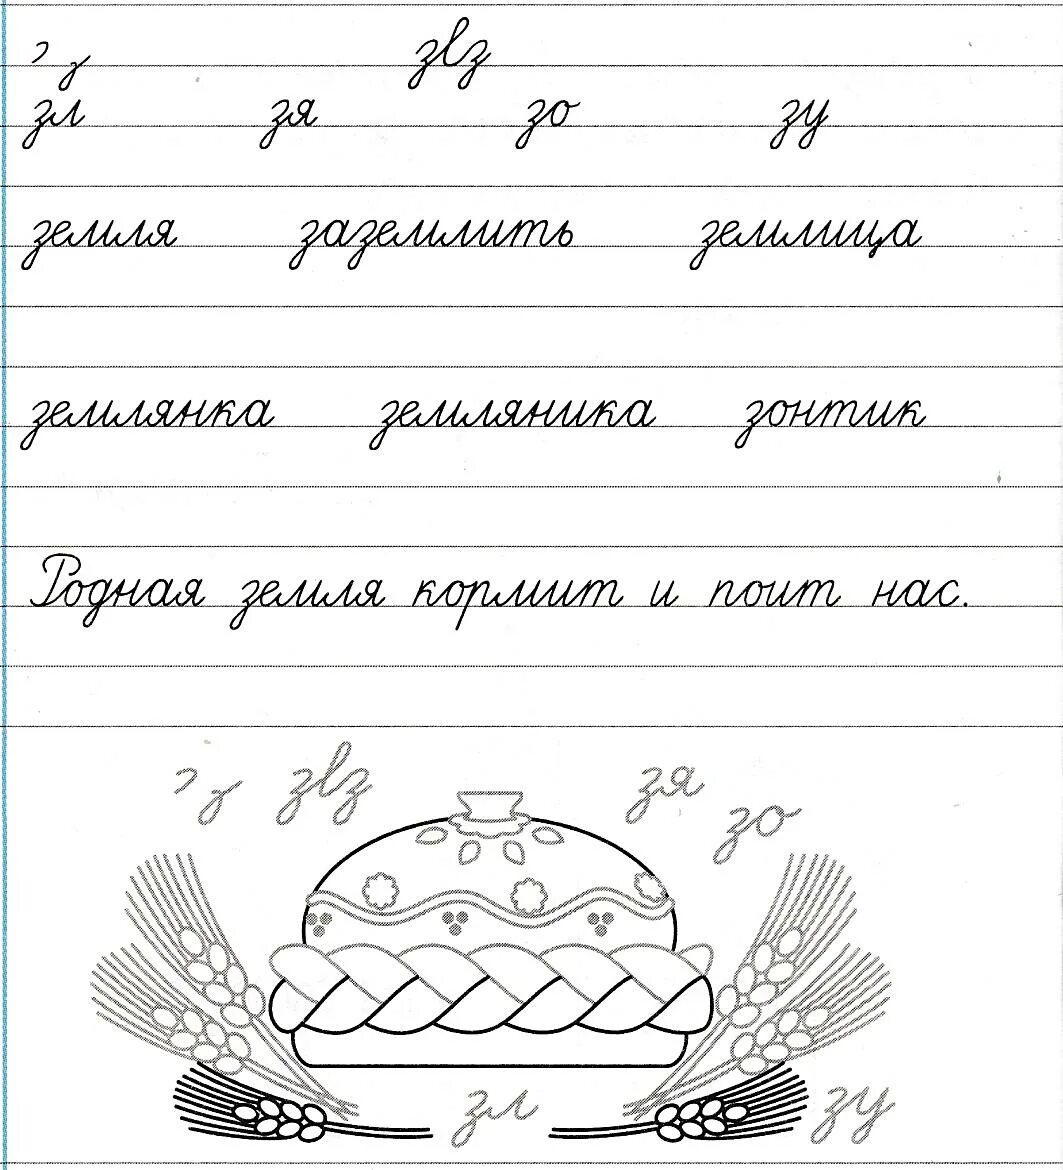 зл зя зо зу
земля заземлить землица
землянка земляника зонтик
Родная земля кормит и поит нас.
зя
зо
зл зу